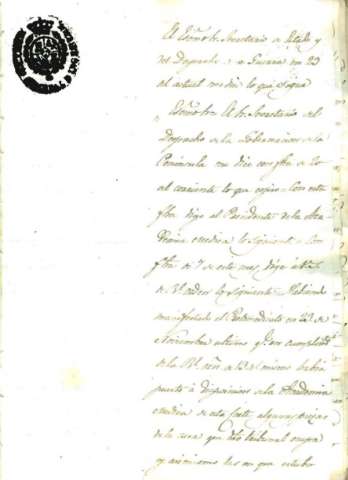 El Exmo Sr. Secretario de Estado y
del Despacho de la Guerra en 23
del actual me dice lo que sigue
Exmo Sr. El Sr. Secretario del
Despacho de la Gobernacion de la
Peninsula me dice con fha de 20
del corriente lo que copio = Con esta
fha digo al Presidente de la Aca
demia medica lo siguiente = Con
fha de 7 de este mes dige a
de Vº orden lo siguiente =
manifestado el Intendente en 24 de
Noviembre ultimo que en cumplimto
de la Rl. orn. de 13 del mismo habia
puesto á disposicion de la Academia
medica de esta Corte algunas piezas
de la casa que dho tribunal ocupa
y asi mismo las en que estubo